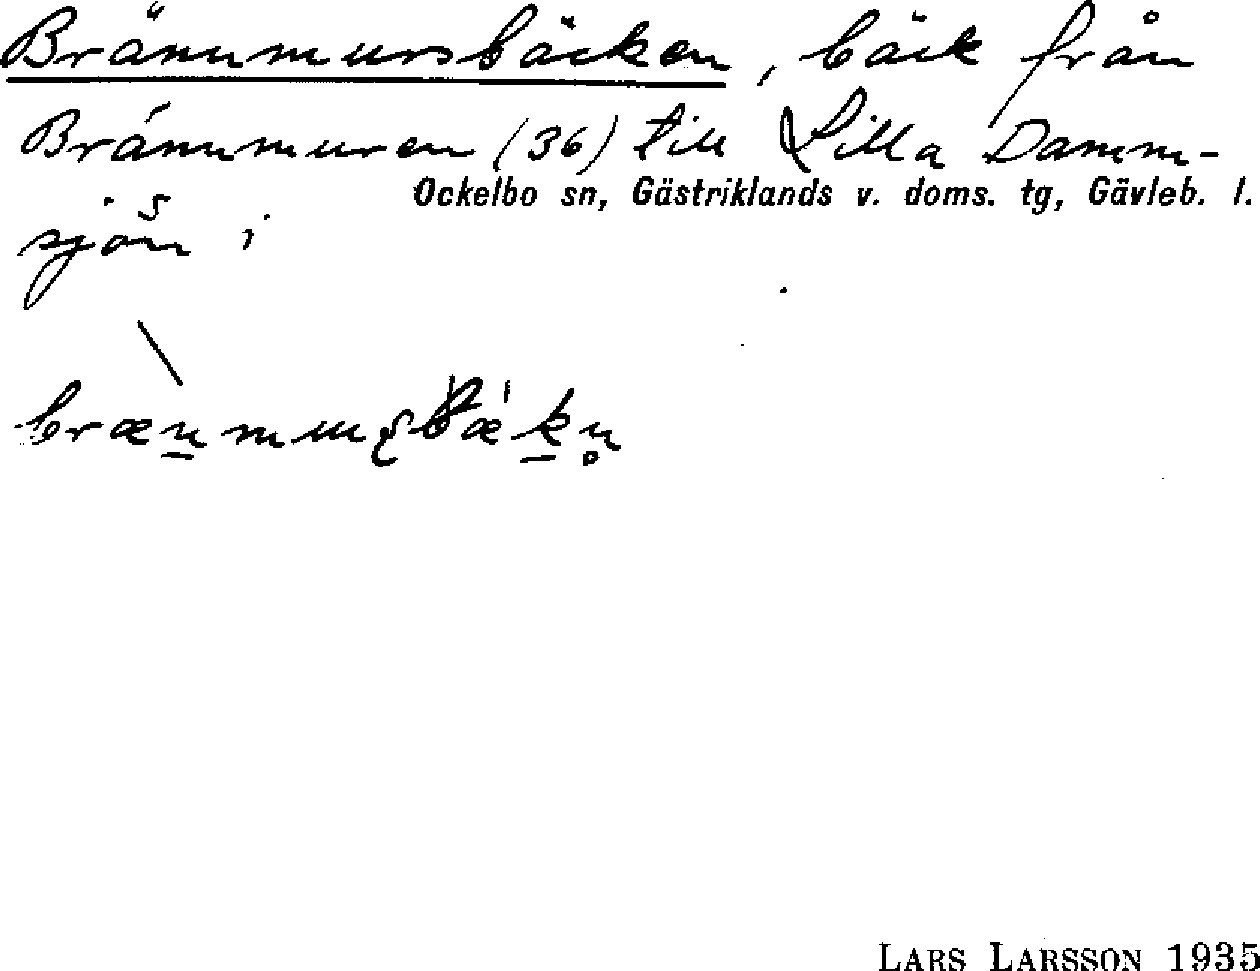 Brännmursbäcken, bäck från
Brännmuren (36) till Lilla Damm-
Ockelbo sn, Gästriklands v. doms. tg, Gävleb. l.
sjön i
LARS LARSSON 1935